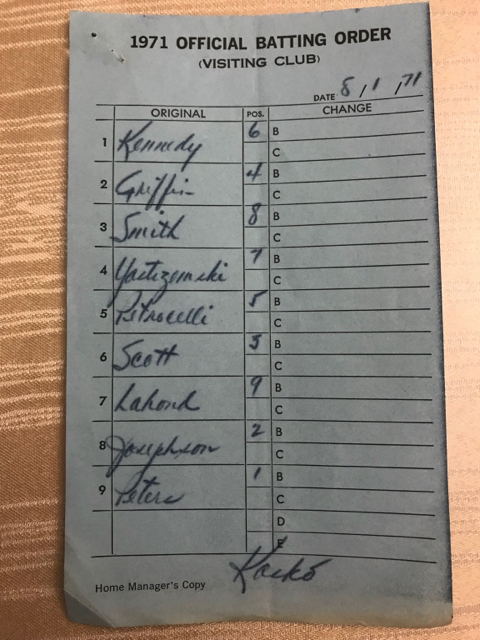 1971 OFFICIAL BATTING ORDER
(VISITING CLUB)
DATE 8/1/71
ORIGINAL POS. CHANGE
1 Kennedy 6 B
C
2 Griffin 4 B
C
3 Smith 8 B
C
4 Yastrzemski 7 B
C
5 Petrocelli 5 B
C
6 Scott 3 B
C
7 Lahoud 9 B
C
8 Josephson 2 B
C
9 Peters 1 B
C
D
E
Kasko
Home Manager's Copy